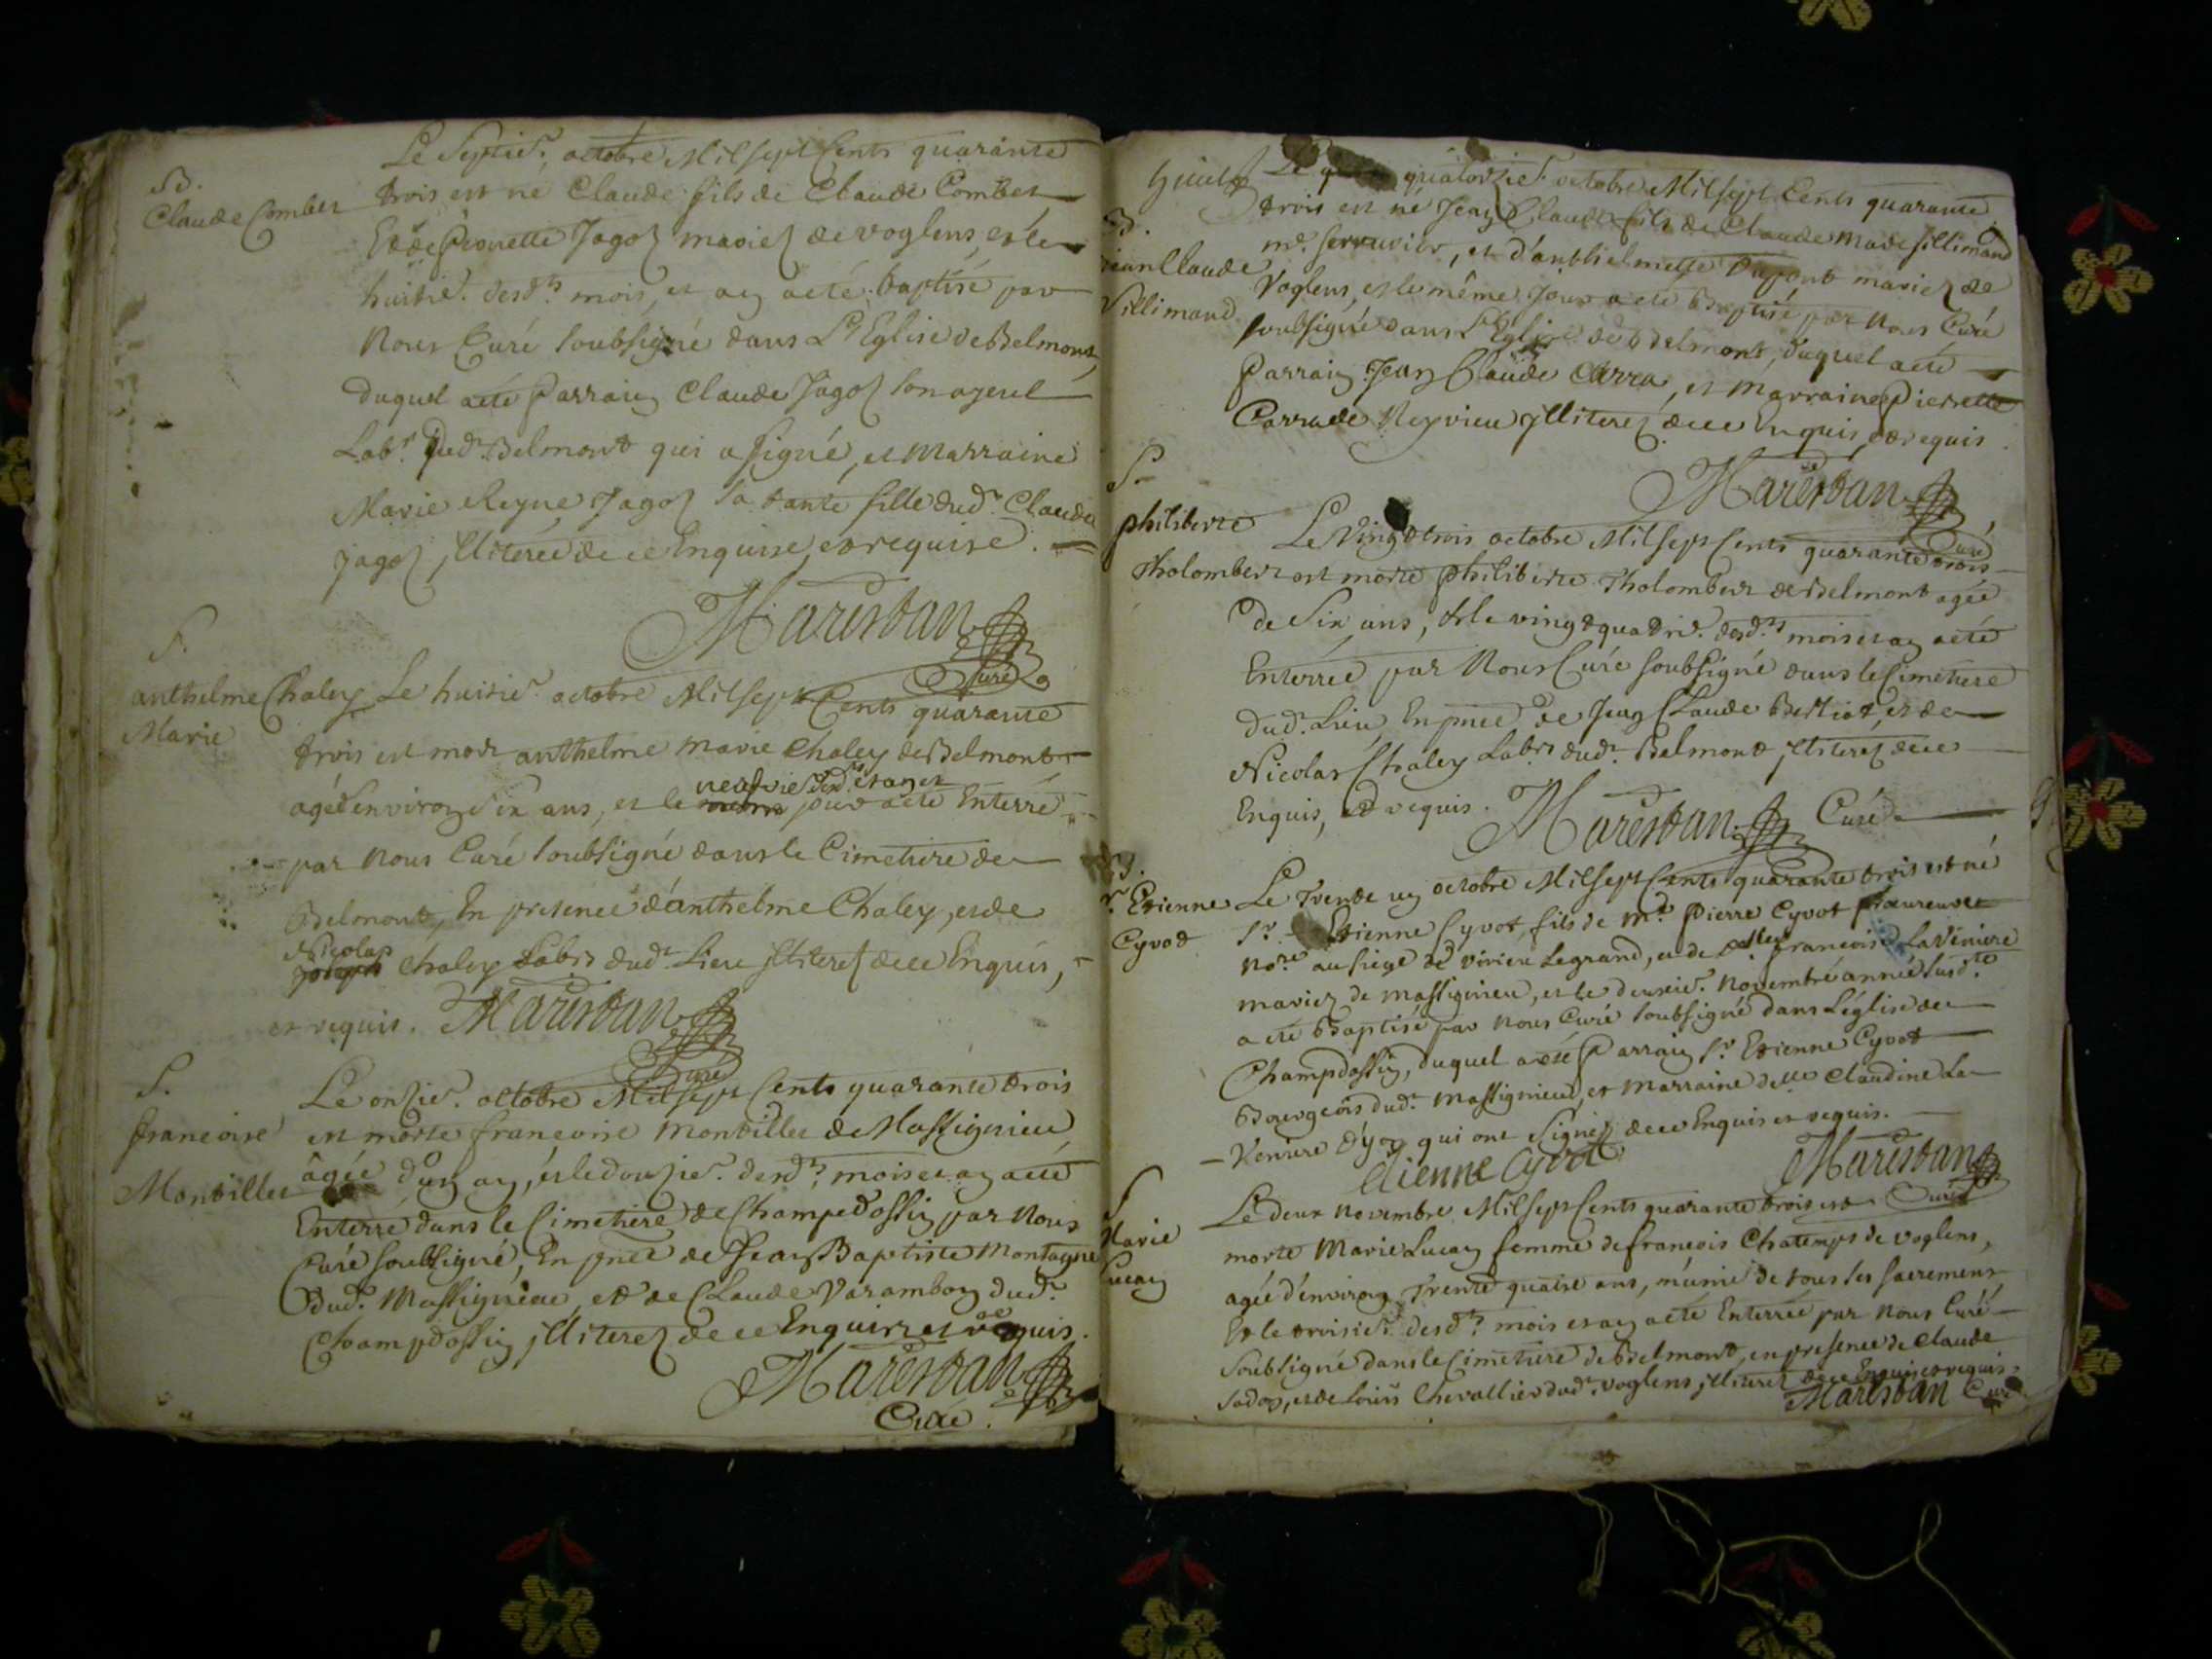 Le Septie. octobre Mil sept Cents quarante
B.
Claude Combet
trois est né Claude fils de Claude Combet
Et de Pernette Jagoz mariez de voglens, et le
huitie. desdts mois, et an a eté baptisé par
Nous Curé soubsigné dans L'Eglise de Belmont,
duquel a eté Parrain Claude Jagoz son ayeul
Labr. dudt Belmont qui a signé, et Marraine
Marie Reyne Jagoz sa tante fille dudt Claude
Jagoz illiterée de ce Enquise, et requise.
Marestan
Curé
S.
anthelme Chaley
Marie
Le huitie. octobre Mil sept Cents quarante
trois est mort anthelme Marie Chaley de Belmont
agé d'environ Six ans, et le neufvie. desdts et an et jour a eté Enterré
par Nous Curé soubsigné dans le Cimetiere de
Belmont, En presence d'anthelme Chaley, et de
Nicolas
Joseph Chaley Labrs dudt Lieu illiterez de ce Enquis,
et requis. Marestan
Curé
S.
francoise
Montillet
Le onzie. octobre Mil sept Cents quarante trois
est morte francoise Montillet de Massignieu
âgée d'un an, et le douzie. desdts mois et an a eté
Enterré dans le Cimetiere de Champdossin par Nous
Curé soubsigné, En pnce de Jean Baptiste Montagne
dudt Massignieu, et de Claude Varambon dudt
Champdossin illiterez de ce Enquis et requis.
Marestan
Curé.
Le quatorzie. octobre Mil sept Cents quarante
B.
Jean Claude
Villimand
trois est né Jean Claude fils de Claude Marie fillimand
md. serrurier, et d'anthelmette Dupont mariez de
Voglens, et le même Jour a eté Baptisé par Nous Curé
soubsigné dans L'Eglise de Belmont, duquel a eté
Parrain Jean Claude Carra, et Marraine Pierrette
Carra de Neyrieu illiterez de ce Enquis, et requis.
Marestan
Curé
S.
philiberte
Tholombert
Le Vingt trois octobre Mil sept Cents quarante trois
est morte philiberte Tholombert de Belmont agée
de Six ans, et le vingt quatrie. desdts mois et an a eté
Enterrée par Nous Curé soubsigné dans le Cimetiere
dudt Lieu, En pnce de Jean Claude Berthet, et de
Nicolas Chaley Labrs dudt Belmont illiterez de ce
Enquis, et requis. Marestan Curé
B.
Sr. Etienne
Cyvot
Le Trente un octobre Mil sept Cents quarante trois est né
Sr. Etienne Cyvot, fils de Me. Pierre Cyvot procureur et
Nore. au siege de Virieu Legrand, et de dlle francoise La Veniere
mariez de Massignieu, et le deuxie. Novembre année susdte
a eté Baptisé par Nous Curé soubsigné dans L'église de
Champdossin, duquel a eté Parrain Sr. Etienne Cyvot
Bourgeois dudt Massignieu, et Marraine dlle Claudine La
Veniere d'yon qui ont signé de ce Enquis et requis.
Etienne Cyvot
Marestan
Curé
S.
Marie
Lucan
Le deux Novembre Mil sept Cents quarante trois est
morte Marie Lucan femme de francois Chatemps de voglens,
agée d'environ Trente quatre ans, munie de tous les sacremens
Et le troisie. desdts mois et an a eté Enterrée par Nous Curé
soubsigné dans le Cimetiere de Belmont, en presence de Claude
et de Loüis Chevallier dudt voglens, illiterez de ce Enquis et requis.
Marestan Curé